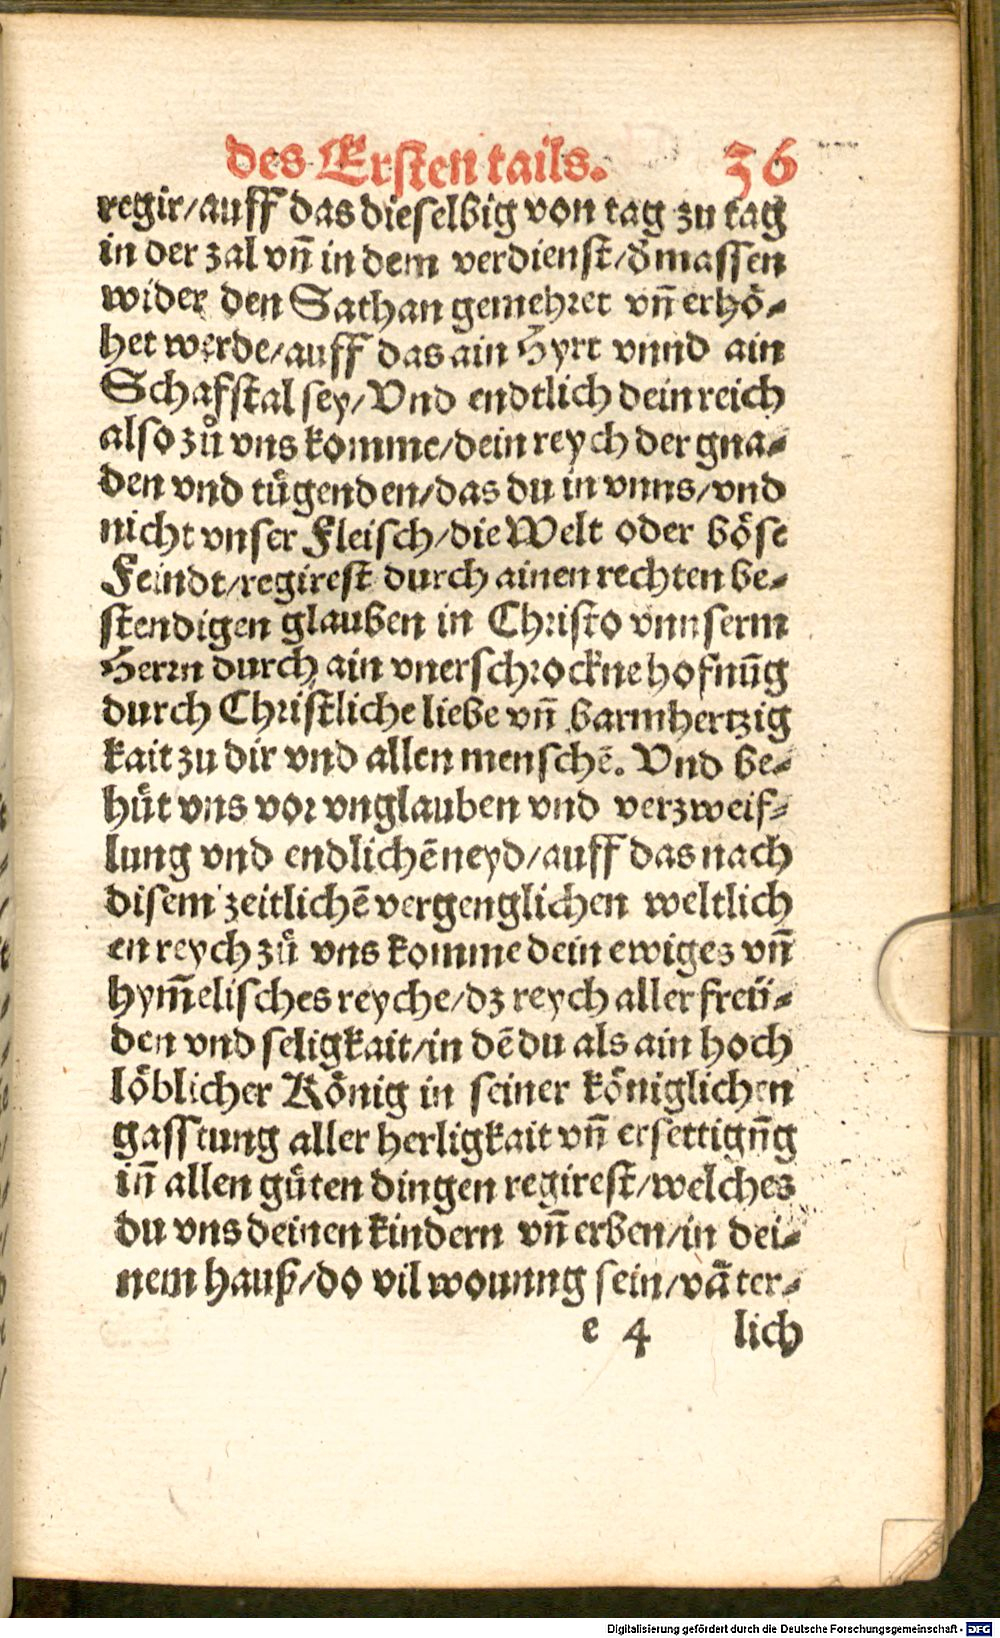 des Ersten tails. 36
regir/auff das dieselbig von tag zu tag
in der zal vn̄ in dem verdienst/d̓massen
wider den Sathan gemehret vn̄ erhö-
het werde/auff das ain Hyrt vnnd ain
Schafstal sey/Vnd endtlich dein reich
also zů vns komme/dein reych der gna-
den vnd tůgenden/das du in vnns/vnd
nicht vnser Fleisch/die Welt oder böse
Feindt/regirest durch ainen rechten be-
stendigen glauben in Christo vnnserm
Herrn durch ain vnerschrockne hofnūg
durch Christliche liebe vn̄ barmhertzig
kait zu dir vnd allen menschē. Vnd be-
hüt vns vor vnglauben vnd verzweif-
lung vnd endlichē neyd/auff das nach
disem zeitlichē vergenglichen weltlich
en reych zů vns komme dein ewiges vn̄
hym̄elisches reyche/dz reych aller freü-
den vnd seligkait/in dē du als ain hoch
löblicher König in seiner königlichen
gasstung aller herligkait vn̄ ersettign̄g
in̄ allen gůten dingen regirest/welches
du vns deinen kindern vn̄ erben/in dei-
nem hauß/do vil wonung sein/väter-
e 4 lich
Digitalisierung gefördert durch die Deutsche Forschungsgemeinschaft - DFG